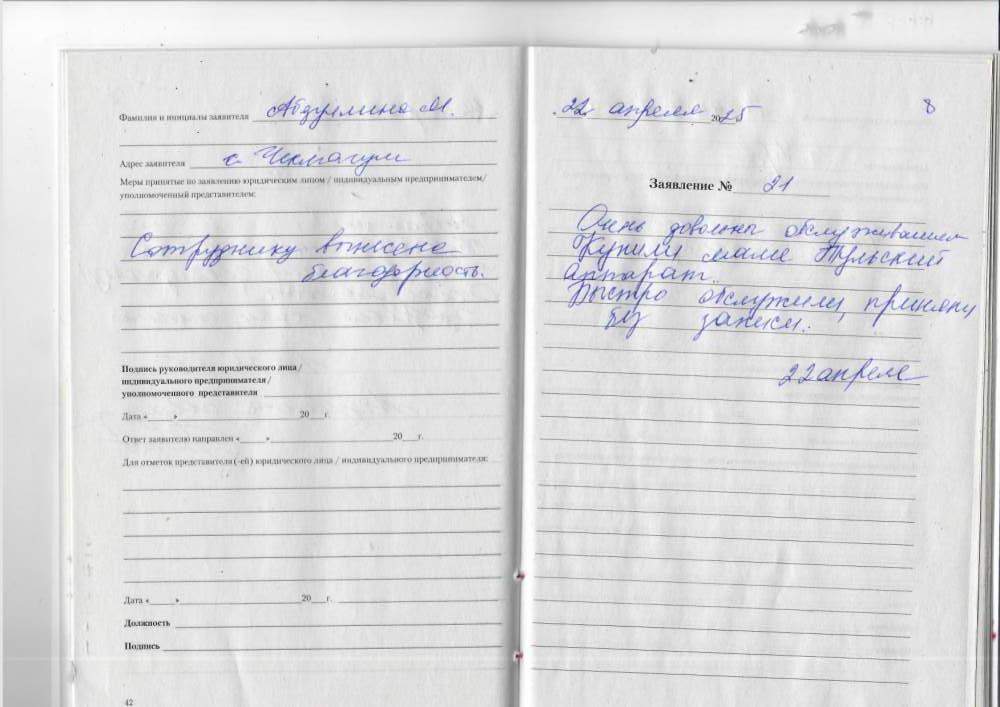 Фамилия и инициалы заявителя Абдуллина М.
Адрес заявителя с. Чекмагуш
Меры принятые по заявлению юридическим лицом / индивидуальным предпринимателем/
уполномоченный представителем:
Сотруднику вынесена
благодарность.
Подпись руководителя юридического лица/
индивидуального предпринимателя/
уполномоченного представителя
Дата «____»____20___г.
Ответ заявителю направлен «____»____20___г.
Для отметок представителя(-ей) юридического лица / индивидуального предпринимателя:
Дата «____»____20___г.
Должность
Подпись
42
22 апреля 2025
8
Заявление № 21
Очень довольны обслуживанием
Купили маме Тульский
аппарат.
Быстро обслужили,
без
22 апреля